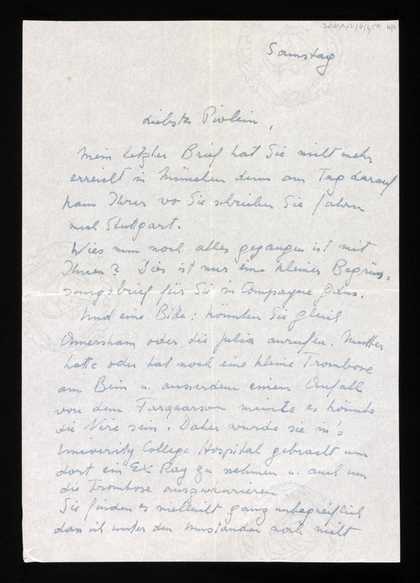 Samstag
Liebster Piolein,
Mein letzter Brief hat Sie nicht mehr
erreicht in München denn am Tag darauf
kam Ihrer wo Sie schreiben Sie fahren
nach Stuttgart.
Wies nun noch alles gegangen ist mit
Ihnen? Dies ist nur ein kleiner Begrüs-
sungsbrief für Sie in Compayne Gdns.
Und eine Bitte: könnten Sie gleich
Amersham oder die Julia anrufen. Mutter
hatte oder hat noch eine kleine Trombose
am Bein u. ausserdem einen Anfall
von dem Farquarson meinte es könnte
die Niere sein. Daher wurde sie in's
University College Hospital gebracht um
dort ein Ex Ray zu nehmen u. auch um
die Trombose auszukurieren
Sie finden es vielleicht ganz unbegreiflich
dass ich unter den Umständen noch nicht